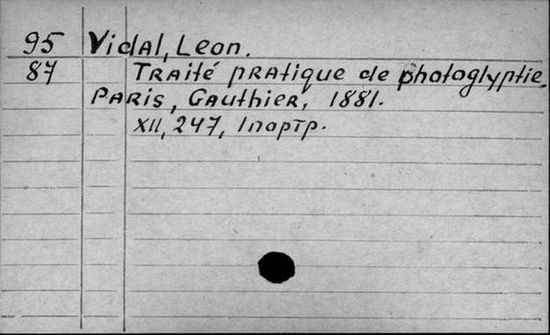 95 Vidal, Leon.
87 Traité pratique de photoglyptie.
Paris, Gauthier, 1881.
XII, 247, 1 портр.